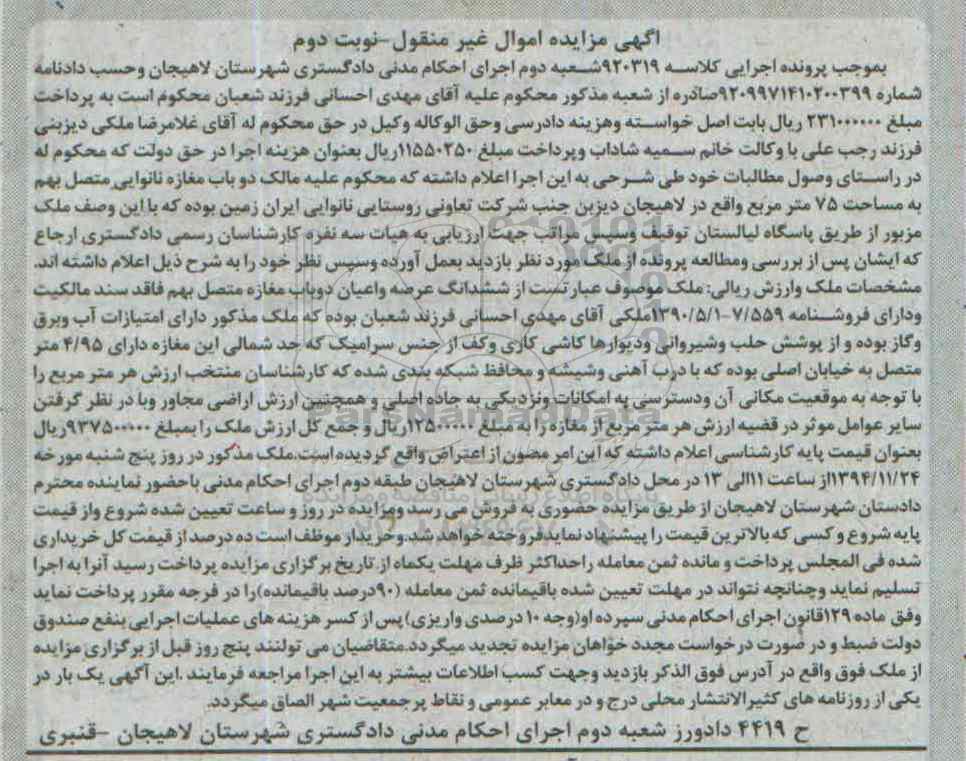 آگهی مزایده اموال غیر منقول-نوبت دوم
بموجب پرونده اجرایی کلاسه ۹۲۰۳۱۹شعبه دوم اجرای احکام مدنی دادگستری شهرستان لاهیجان وحسب دادنامه
شماره ۹۲۰۹۹۷۱۴۱۰۲۰۰۳۹۹صادره از شعبه مذکور محکوم علیه آقای مهدی احسانی فرزند شعبان محکوم است به پرداخت
مبلغ ۲۳۱۰۰۰۰۰۰ ریال بابت اصل خواسته وهزینه دادرسی وحق الوکاله وکیل در حق محکوم له آقای غلامرضا ملکی دیزبنی
فرزند رجب علی با وکالت خانم سمیه شاداب وپرداخت مبلغ ۱۱۵۵۰۲۵۰ریال بعنوان هزینه اجرا در حق دولت که محکوم له
در راستای وصول مطالبات خود طی شرحی به این اجرا اعلام داشته که محکوم علیه مالک دو باب مغازه نانوایی متصل بهم
به مساحت ۷۵ متر مربع واقع در لاهیجان دیزبن جنب شرکت تعاونی روستایی نانوایی ایران زمین بوده که با این وصف ملک
مزبور از طریق پاسگاه لیالستان توقیف وسپس مراتب جهت ارزیابی به هیات سه نفره کارشناسان رسمی دادگستری ارجاع
که ایشان پس از بررسی ومطالعه پرونده از ملک مورد نظر بازدید بعمل آورده وسپس نظر خود را به شرح ذیل اعلام داشته اند.
مشخصات ملک وارزش ریالی: ملک موصوف عبارتست از ششدانگ عرصه واعیان دوباب مغازه متصل بهم فاقد سند مالکیت
ودارای فروشنامه ۷/۵۵۹-۱۳۹۰/۵/۱ملکی آقای مهدی احسانی فرزند شعبان بوده که ملک مذکور دارای امتیازات آب وبرق
وگاز بوده و از پوشش حلب وشیروانی ودیوارها کاشی کاری وکف از جنس سرامیک که حد شمالی این مغازه دارای ۴/۹۵ متر
متصل به خیابان اصلی بوده که با درب آهنی وشیشه و محافظ شبکه بندی شده که کارشناسان منتخب ارزش هر متر مربع را
با توجه به موقعیت مکانی آن ودسترسی به امکانات ونزدیکی به جاده اصلی و همچنین ارزش اراضی مجاور وبا در نظر گرفتن
سایر عوامل موثر در قضیه ارزش هر متر مربع از مغازه را به مبلغ ۱۲۵۰۰۰۰۰ریال و جمع کل ارزش ملک را بمبلغ ۹۳۷۵۰۰۰۰۰ریال
بعنوان قیمت پایه کارشناسی اعلام داشته که این امر مصون از اعتراض واقع گردیده است.ملک مذکور در روز پنج شنبه مورخه
۱۳۹۴/۱۱/۲۴از ساعت ۱۱الی ۱۳ در محل دادگستری شهرستان لاهیجان طبقه دوم اجرای احکام مدنی باحضور نماینده محترم
دادستان شهرستان لاهیجان از طریق مزایده حضوری به فروش می رسد ومزایده در روز و ساعت تعیین شده شروع واز قیمت
پایه شروع و کسی که بالاترین قیمت را پیشنهاد نماید فروخته خواهد شد.وخریدار موظف است ده درصد از قیمت کل خریداری
شده فی المجلس پرداخت و مانده ثمن معامله راحداکثر ظرف مهلت یکماه از تاریخ برگزاری مزایده پرداخت رسید آنرا به اجرا
تسلیم نماید وچنانچه نتواند در مهلت تعیین شده باقیمانده ثمن معامله (۹۰درصد باقیمانده)را در فرجه مقرر پرداخت نماید
وفق ماده ۱۲۹قانون اجرای احکام مدنی سپرده او(وجه ۱۰ درصدی واریزی) پس از کسر هزینه های عملیات اجرایی بنفع صندوق
دولت ضبط و در صورت درخواست مجدد خواهان مزایده تجدید میگردد.متقاضیان می توانند پنج روز قبل از برگزاری مزایده
از ملک فوق واقع در آدرس فوق الذکر بازدید وجهت کسب اطلاعات بیشتر به این اجرا مراجعه فرمایند .این آگهی یک بار در
یکی از روزنامه های کثیرالانتشار محلی درج و در معابر عمومی و نقاط پرجمعیت شهر الصاق میگردد.
ح ۴۴۱۹ دادورز شعبه دوم اجرای احکام مدنی دادگستری شهرستان لاهیجان -قنبری
ParsNamadData